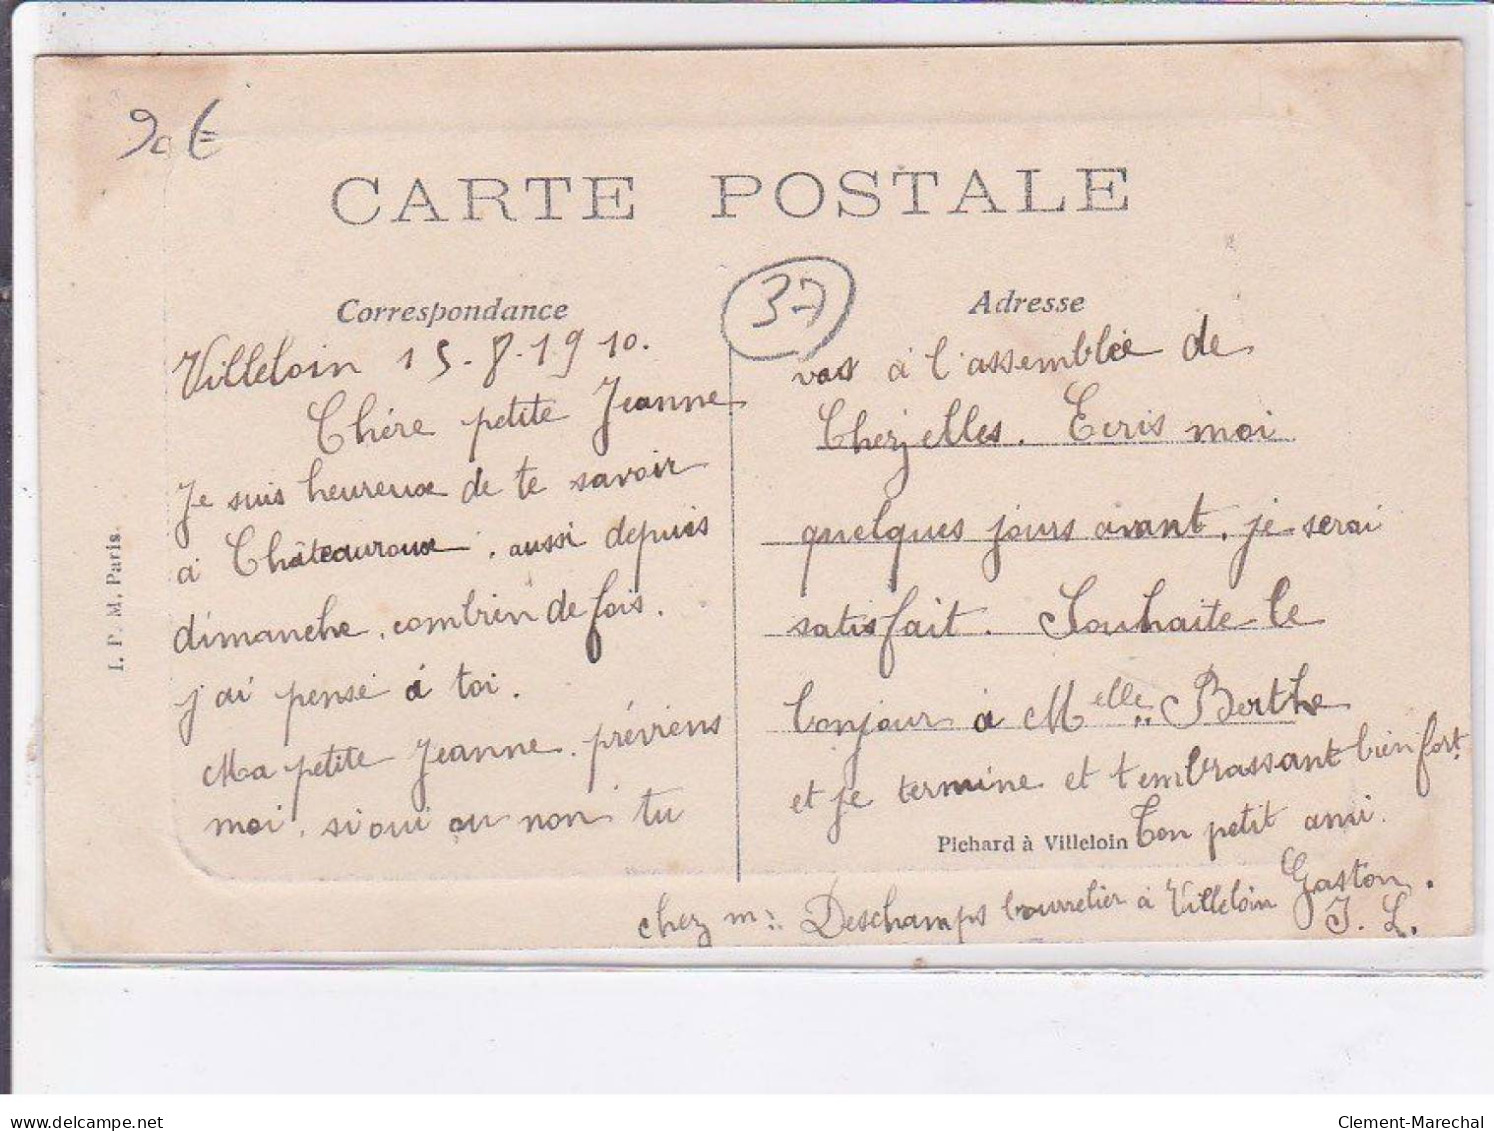 90€
CARTE POSTALE
37
Correspondance
Villeloin 15-8-1910.
Chére petite Jeanne
Je suis heureux de te savoir
à Châteauroux, aussi depuis
dimanche, combien de fois.
j'ai pensé à toi.
Ma petite Jeanne, préviens
moi, si oui ou non tu
I. P. M. Paris.
Adresse
vas à l'assemblée de
Chezelles. Ecris moi
quelques jours avant, je serai
satisfait. Souhaite le
bonjour à Melle Berthe
et je termine et t'embrassant bien fort.
Ton petit ami.
Pichard à Villeloin
Gaston.
J. L.
chez mr: Deschamps bourrelier à Villeloin
www.delcampe.net
Clement-Marechal